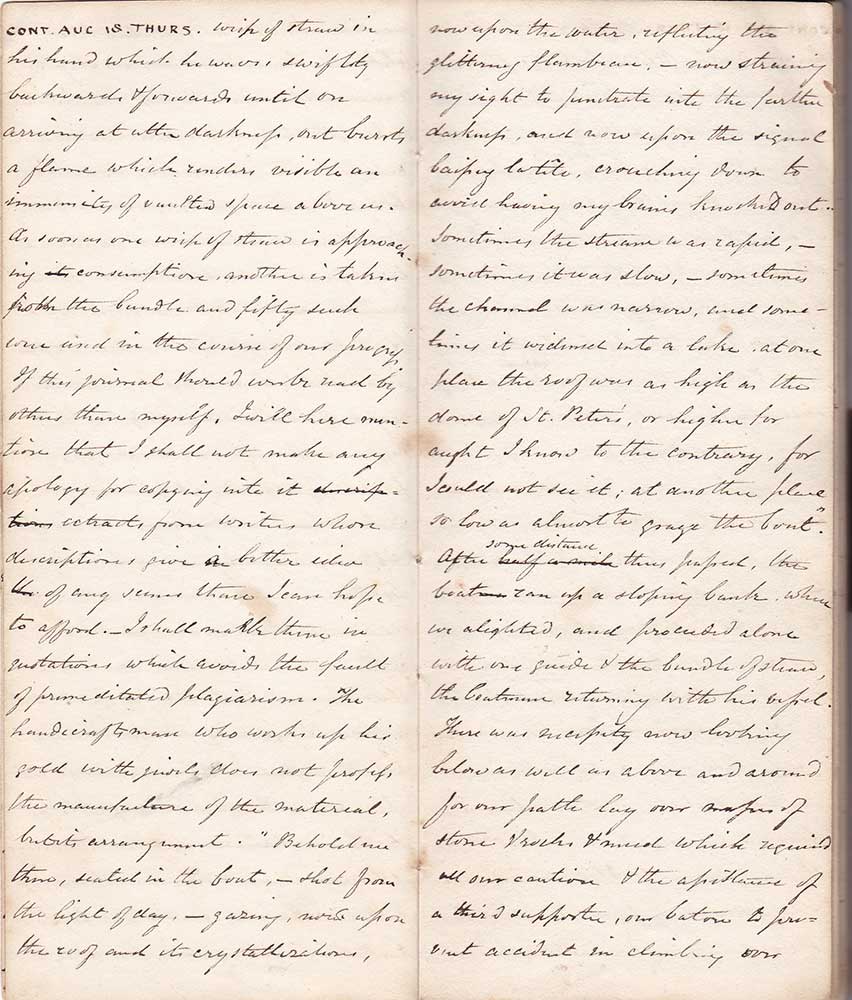 CONT. AUG 18. THURS. wisp of straw in
his hand which he waves swiftly
backwards & forwards until on
arriving at utter darkness, out bursts
a flame which renders visible an
immensity of vaulted space above us.
As soon as one wisp of straw is approach-
ing its consumption, another is taken
from the bundle and fifty such
were used in the course of our progress
If this journal should ever be read by
others than myself, I will here men-
tion that I shall not make any
apology for copying into it descrip-
tions extracts from writers whose
descriptions give a better idea
the of any scenes than I can hope
to afford. — I shall make them in
quotations which avoids the fault
of premeditated plagiarism. The
handicraftsman who works up his
gold with jewels does not profess
the manufacture of the material,
but its arrangement. "Behold me
then, seated in the boat, — shot from
the light of day, — gazing, now upon
the roof and its crystallizations,
now upon the water, reflecting the
glittering flambeau, — now straining
my sight to penetrate into the further
darkness, and now upon the signal
baissez la tête, crouching down to
avoid having my brains knocked out.
Sometimes the stream was rapid, —
sometimes it was slow, — sometimes
the channel was narrow, and some-
times it widened into a lake. at one
place the roof was as high as the
dome of St. Peter's, or higher for
aught I know to the contrary, for
I could not see it; at another place
so low as almost to graze the boat".
some distance
After half a mile thus passed, the
boatman ran up a sloping bank, where
we alighted, and proceeded alone
with one guide & the bundle of straw,
the boatman returning with his vessel.
There was necessity now looking
below as well as above and around
for our path lay over masses of
stone & rocks & mud which required
all our caution & the assistance of
a third supporter, our baton to pre-
vent accident in climbing over